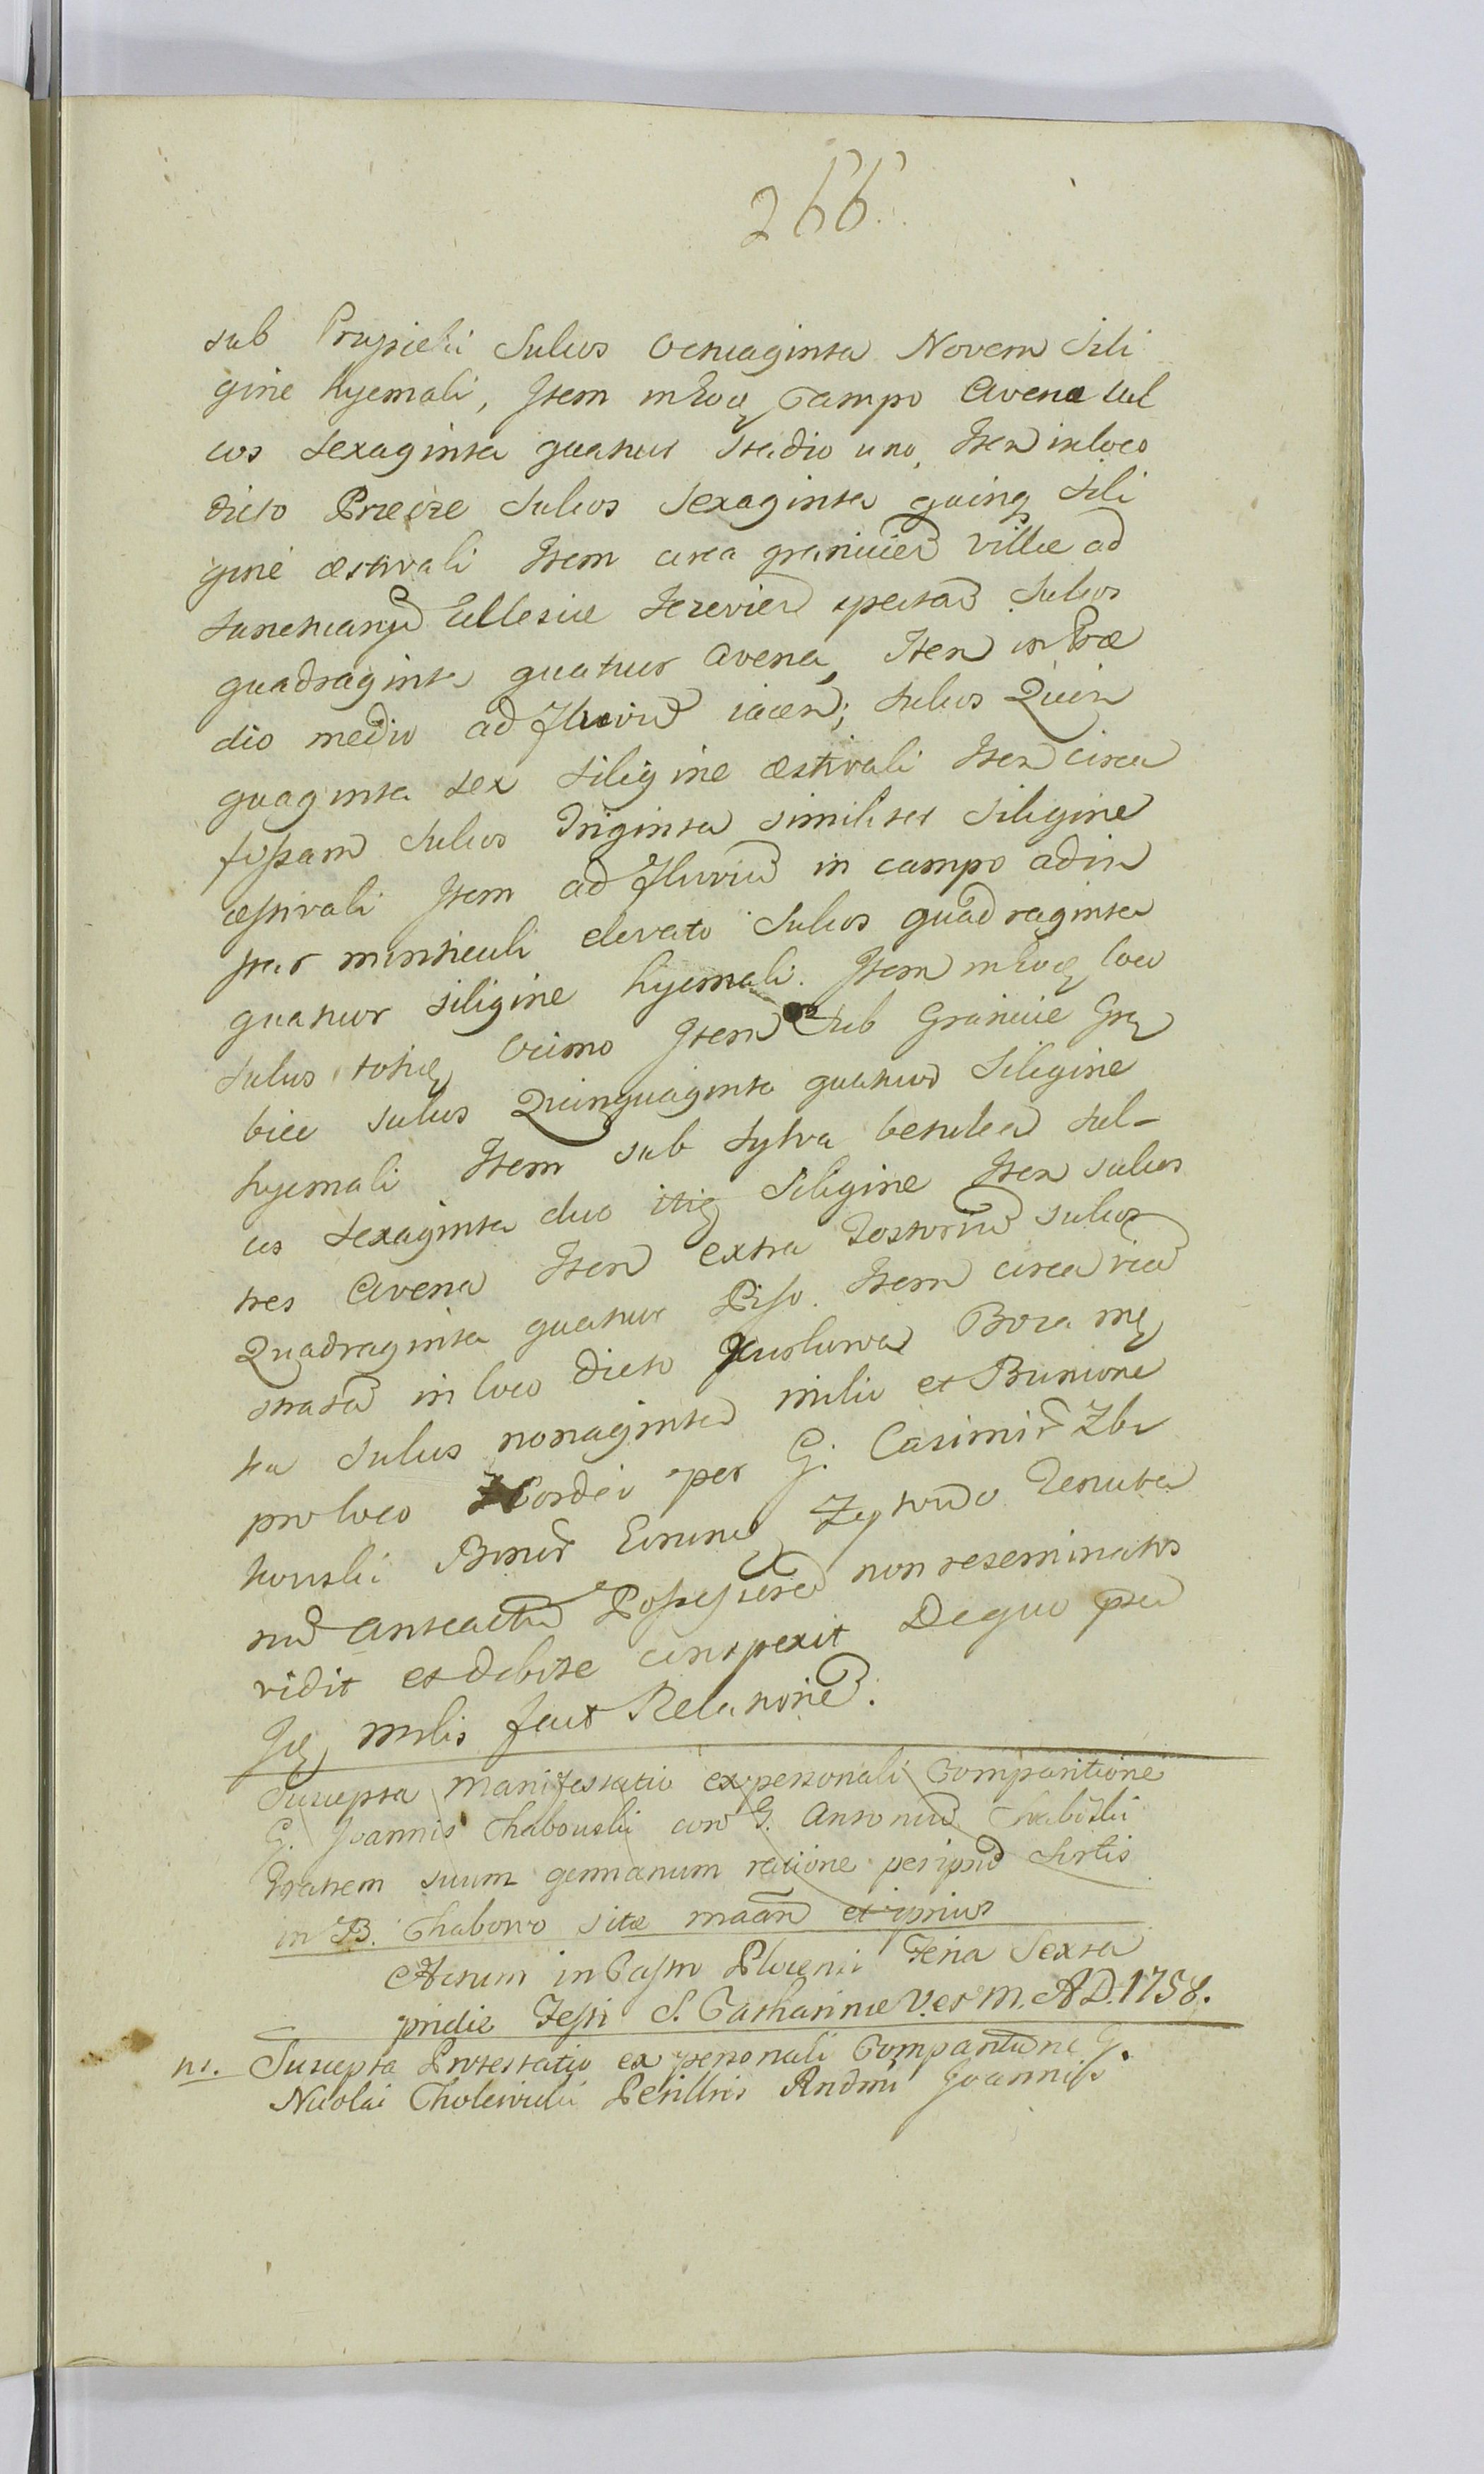 266.
sub Prusiecki Sulcos Octuaginta Novem Sili
gine hyemali, Item in hocq Campo Avena Sul
cos Sexaginta quatuor Stadio uno, Item in loco
dicto Przecze Sulcos Sexaginta quinq Sili
gine æstivali Item circa granicieb Villæ ad
Sanctuariu Ecclesiæ spectan Sulcos
quadraginta quatuor avena, Item in Præ
dio medio ad fluviu iacen; Sulcos Quin
quaginta sex Siligine æstivali Item circa
fossam Sulcos Triginta similiter Siligine
æstivali Item ad Fluviu in campo ad in
star monticuli elevato Sulcos quadraginta
quatuor siligine hyemali. Item in hocq loco
Sulcos totiq Ocimo Item sub Granicie Grą
bice sulcos Quinquaginta quatuor Siligine
hyemali Item sub Sylva betulea Sul-
cos Sexaginta duo itiq Siligine Item sulcos
tres Avena Item extra Tostoriu sulcos
Quadraginta quatuor Piso. Item circa via
strata in loco dicto Bora mę
ta Sulcos nonaginta milio et Bunione
pro loco Hordei per G. Casimir Zbi
kowski Bonor Tenuta
riu anteactu Possessore non reseminatos
vidit et debite conspexit Dequo præ
mrlis fecit Relatione.
Suscepta Manifestatio ex personali Comparitione
G. Joannis Chabowski con G. Antoniu Chabowski
Fratrem suum germanum ratione per ipsu Sortis
in B. Chabowo sitæ maan et ipsius
Actum in Castro Plocensi Feria Sexta
pridie Festi S. Catharinæ V. et M. A D. 1758.
ns. Suscepta Protestatio ex personali Comparitione G.
Nicolai Cholewicki Perillris Andmi Joannis